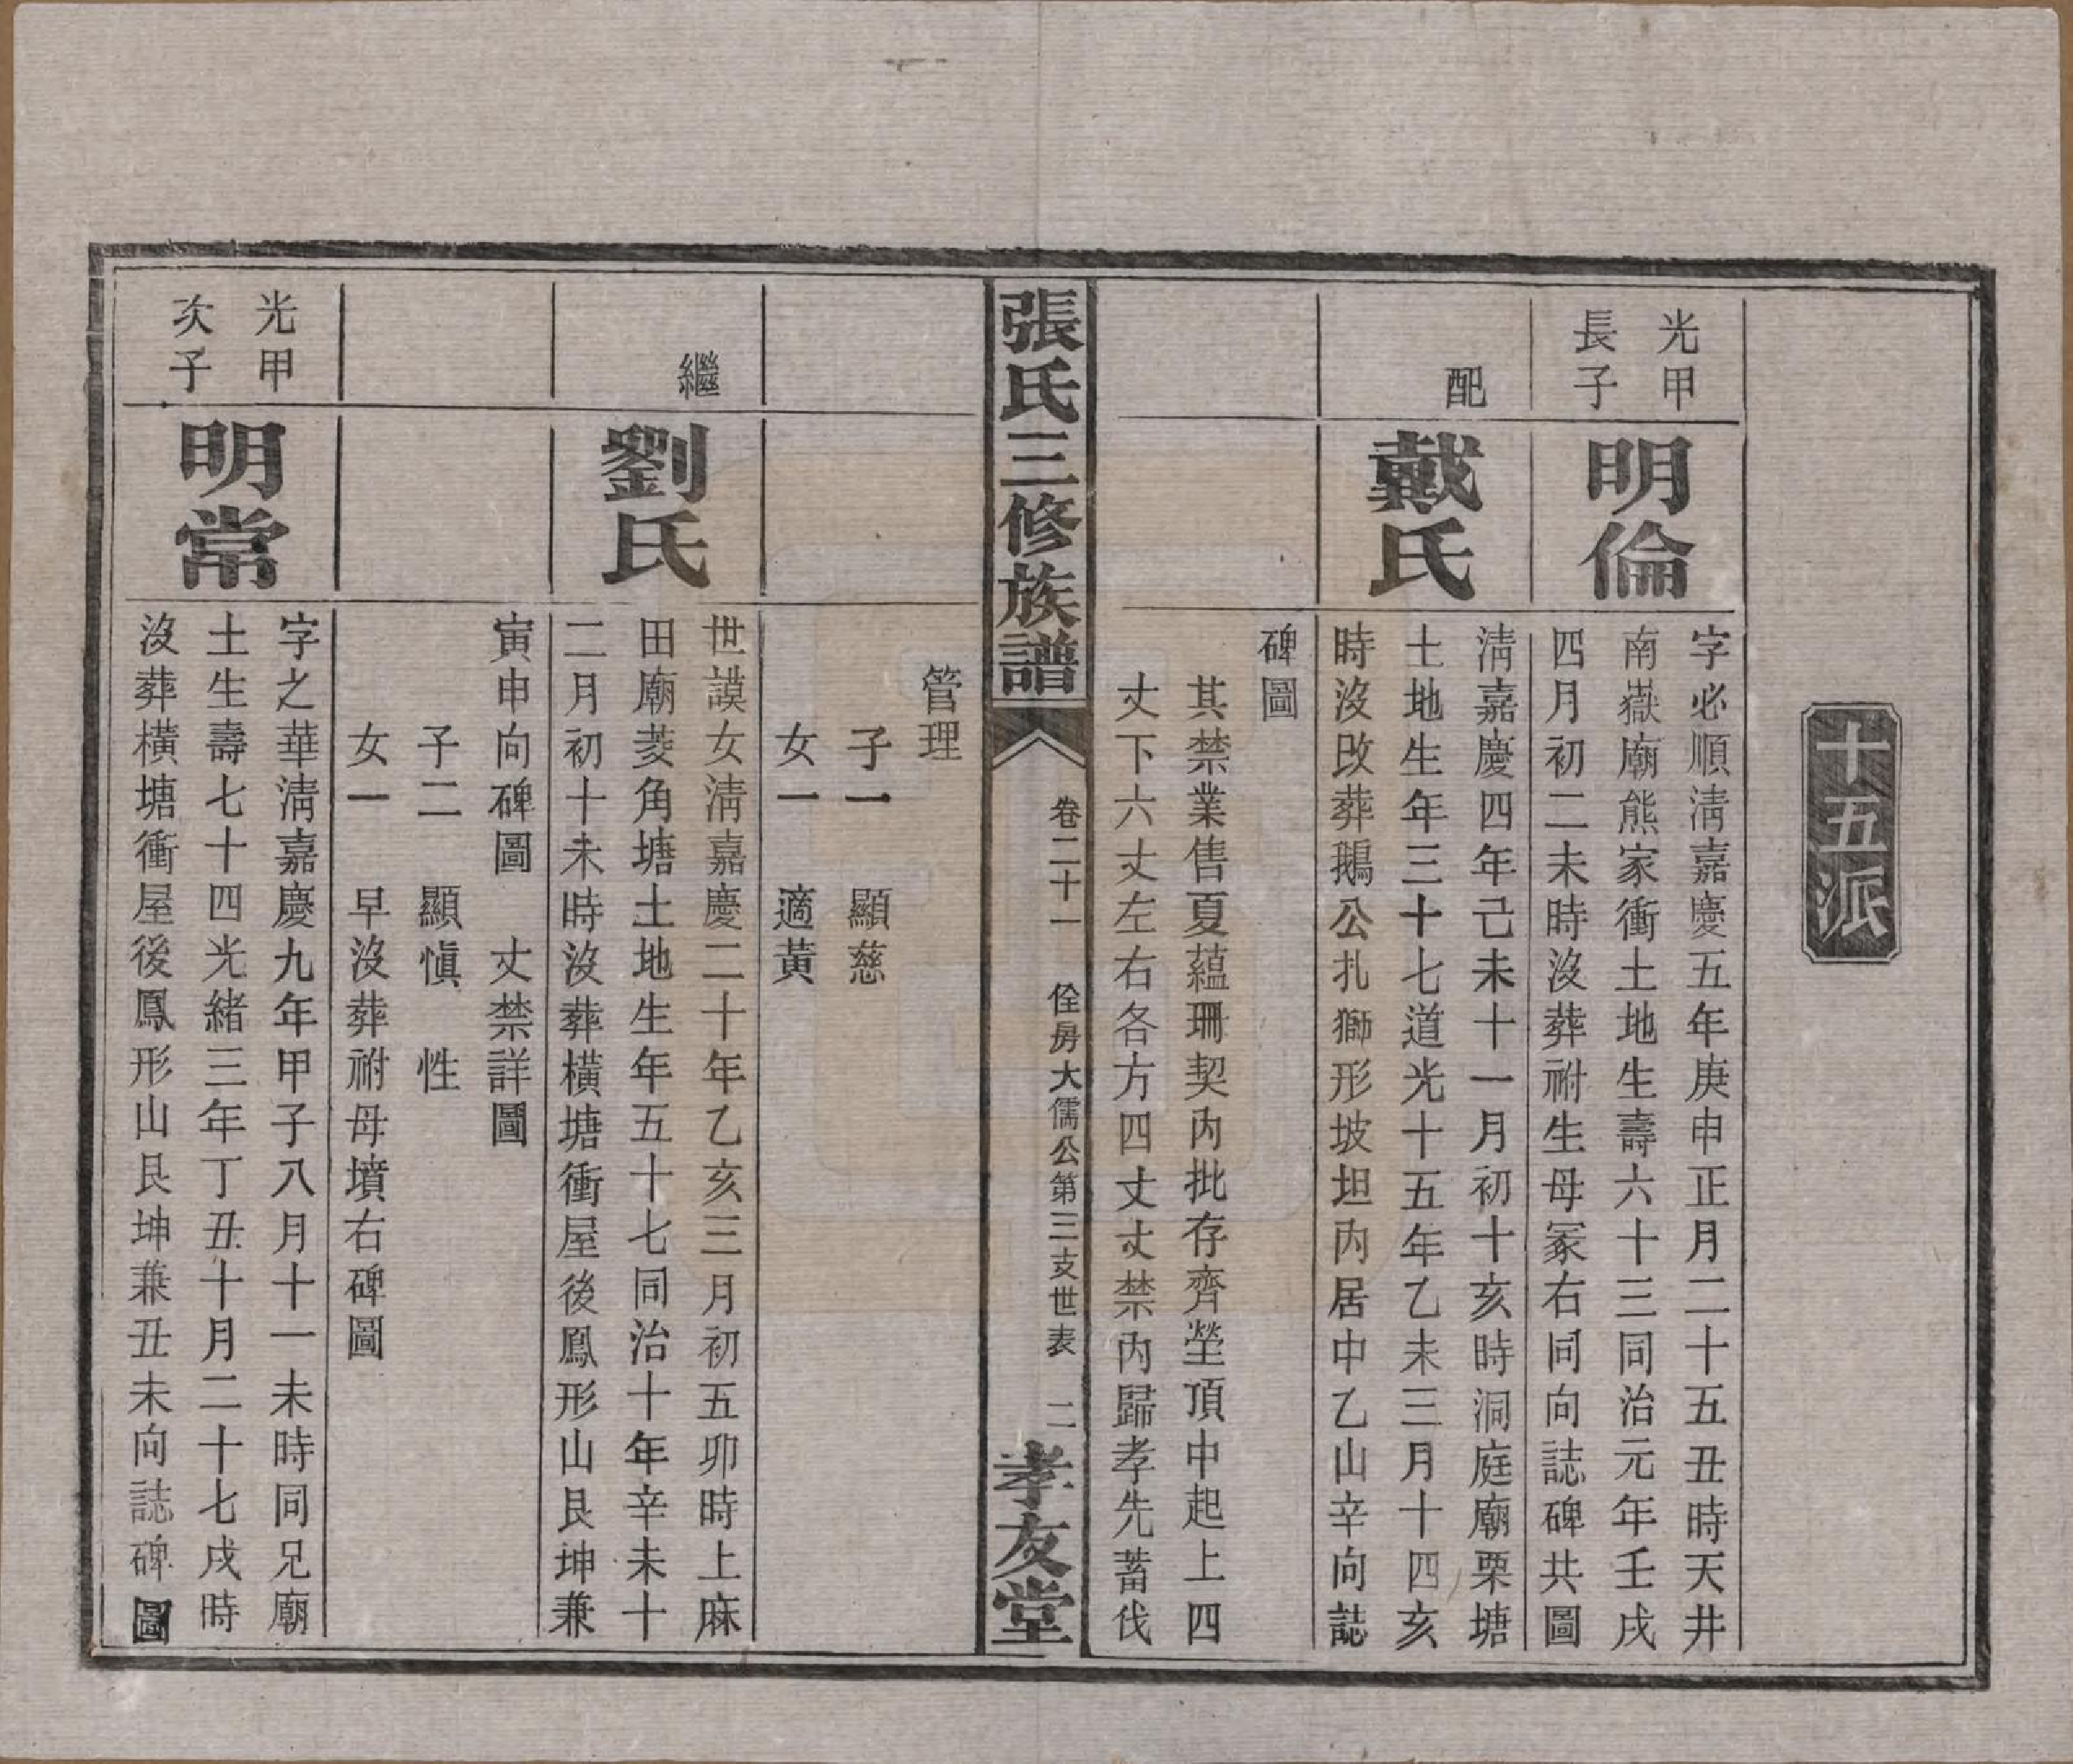 十五派
光甲
長子
明倫
字必順淸嘉慶五年庚申正月二十五丑時天井
南嶽廟熊家衝土地生壽六十三同治元年壬戌
四月初二未時沒葬祔生母冢右同向誌碑共圖
配
戴氏
淸嘉慶四年己未十一月初十亥時洞庭廟栗塘
土地生年三十七道光十五年乙未三月十四亥
時沒改葬鵝公扎獅形坡坦內居中乙山辛向誌
碑圖
其禁業售夏蘊珊契內批存齊塋頂中起上四
丈下六丈左右各方四丈丈禁內歸孝先蓄伐
張氏三修族譜
卷二十一
佺房大儒公第三支世表
二
孝友堂
管理
子一　顯慈
女一　適黃
繼
劉氏
世謨女淸嘉慶二十年乙亥三月初五卯時上麻
田廟菱角塘土地生年五十七同治十年辛未十
二月初十未時沒葬橫塘衝屋後鳳形山艮坤兼
寅申向碑圖　丈禁詳圖
子二　顯愼　性
女一　早沒葬祔母墳右碑圖
光甲
次子
明常
字之華淸嘉慶九年甲子八月十一未時同兄廟
土生壽七十四光緒三年丁丑十月二十七戌時
沒葬橫塘衝屋後鳳形山艮坤兼丑未向誌碑圖